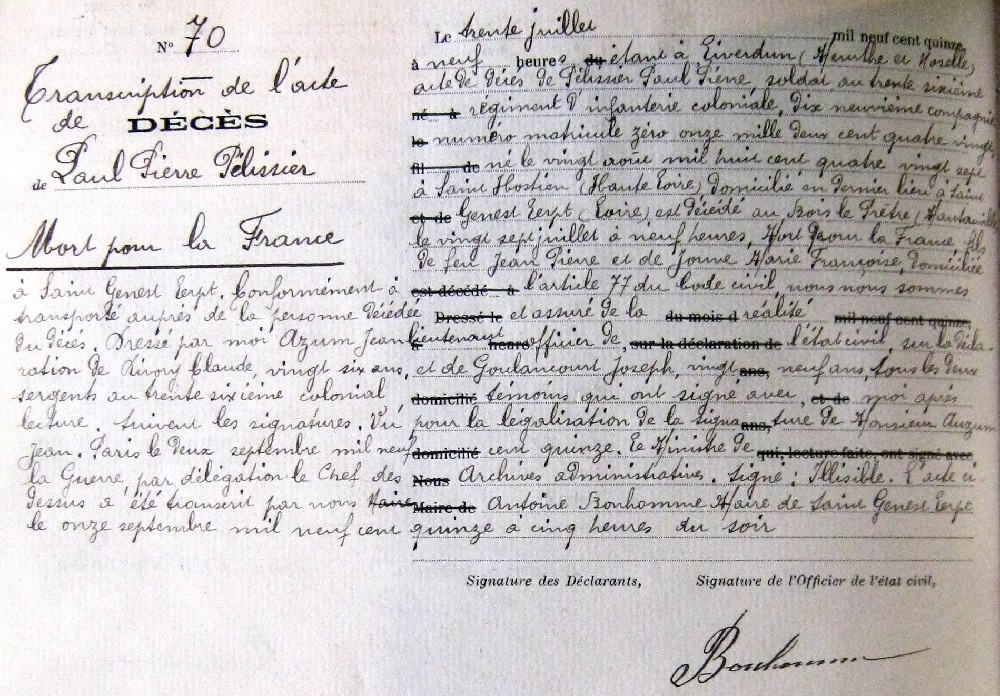 N° 70
Transcription de l'acte
de DÉCÈS
de Paul Pierre Pélissier
Mort pour la France
Le trente juillet mil neuf cent quinze,
à neuf heures du étant à Liverdun (Meurthe et Moselle)
acte de décès de Pélissier Paul Pierre, soldat au trente sixième
né à régiment d'infanterie coloniale, dix neuvième compagnie
le numéro matricule zéro onze mille deux cent quatre vingt,
fil de né le vingt aout mil huit cent quatre vingt sept
à Saint Hostien (Haute Loire), domicilié en dernier lieu à Saint
et de Genest Lerpt (Loire) est décédé au Bois le Prêtre
le vingt sept juillet à neuf heures, Mort pour la France fils
de feu Jean Pierre et de Jonne Marie Françoise, domiciliée
à Saint Genest Lerpt. Conformément à est décédé à l'article 77 du Code civil nous nous sommes
transporté auprès de la personne décédée Dressé le et assuré de la du mois d réalité mil neuf cent quinze,
du décès. Dressé par moi Azum Jean lieutenant heure officier de, sur la déclaration de l'état civil, sur la décla-
ration de Claude, vingt six ans, et de Goulancourt Joseph, vingt ans, neuf ans, tous les deux
sergents au trente sixième colonial domicilié témoins qui ont signé avec, et de moi après
lecture. Suivent les signatures. Vu pour la légalisation de la signa ans, ture de Monsieur Auzum
Jean. Paris le deux septembre mil neuf domicilié cent quinze. Le Ministre de qui, lecture faite, ont signé avec
la Guerre, par délégation le Chef des Nous Archives administratives. Signé : Illisible. L'acte ci
dessus a été transcrit par nous Maire Maire de Antoine Bonhomme Maire de Saint Genest Lerpt
le onze septembre mil neuf cent quinze à cinq heures du soir
Signature des Déclarants, Signature de l'Officier de l'état civil,
Bonhomme